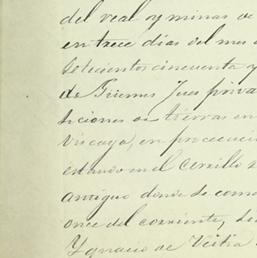 del real y minas de
en trece dias del mes d
setecientos cincuenta y
de Guemes Juez priva
siciones de tierras en
Viscaya, en prosecucio
estando en el cerrillo
antiguo donde se come
once del corriente, de
Ygnacio de Veitia